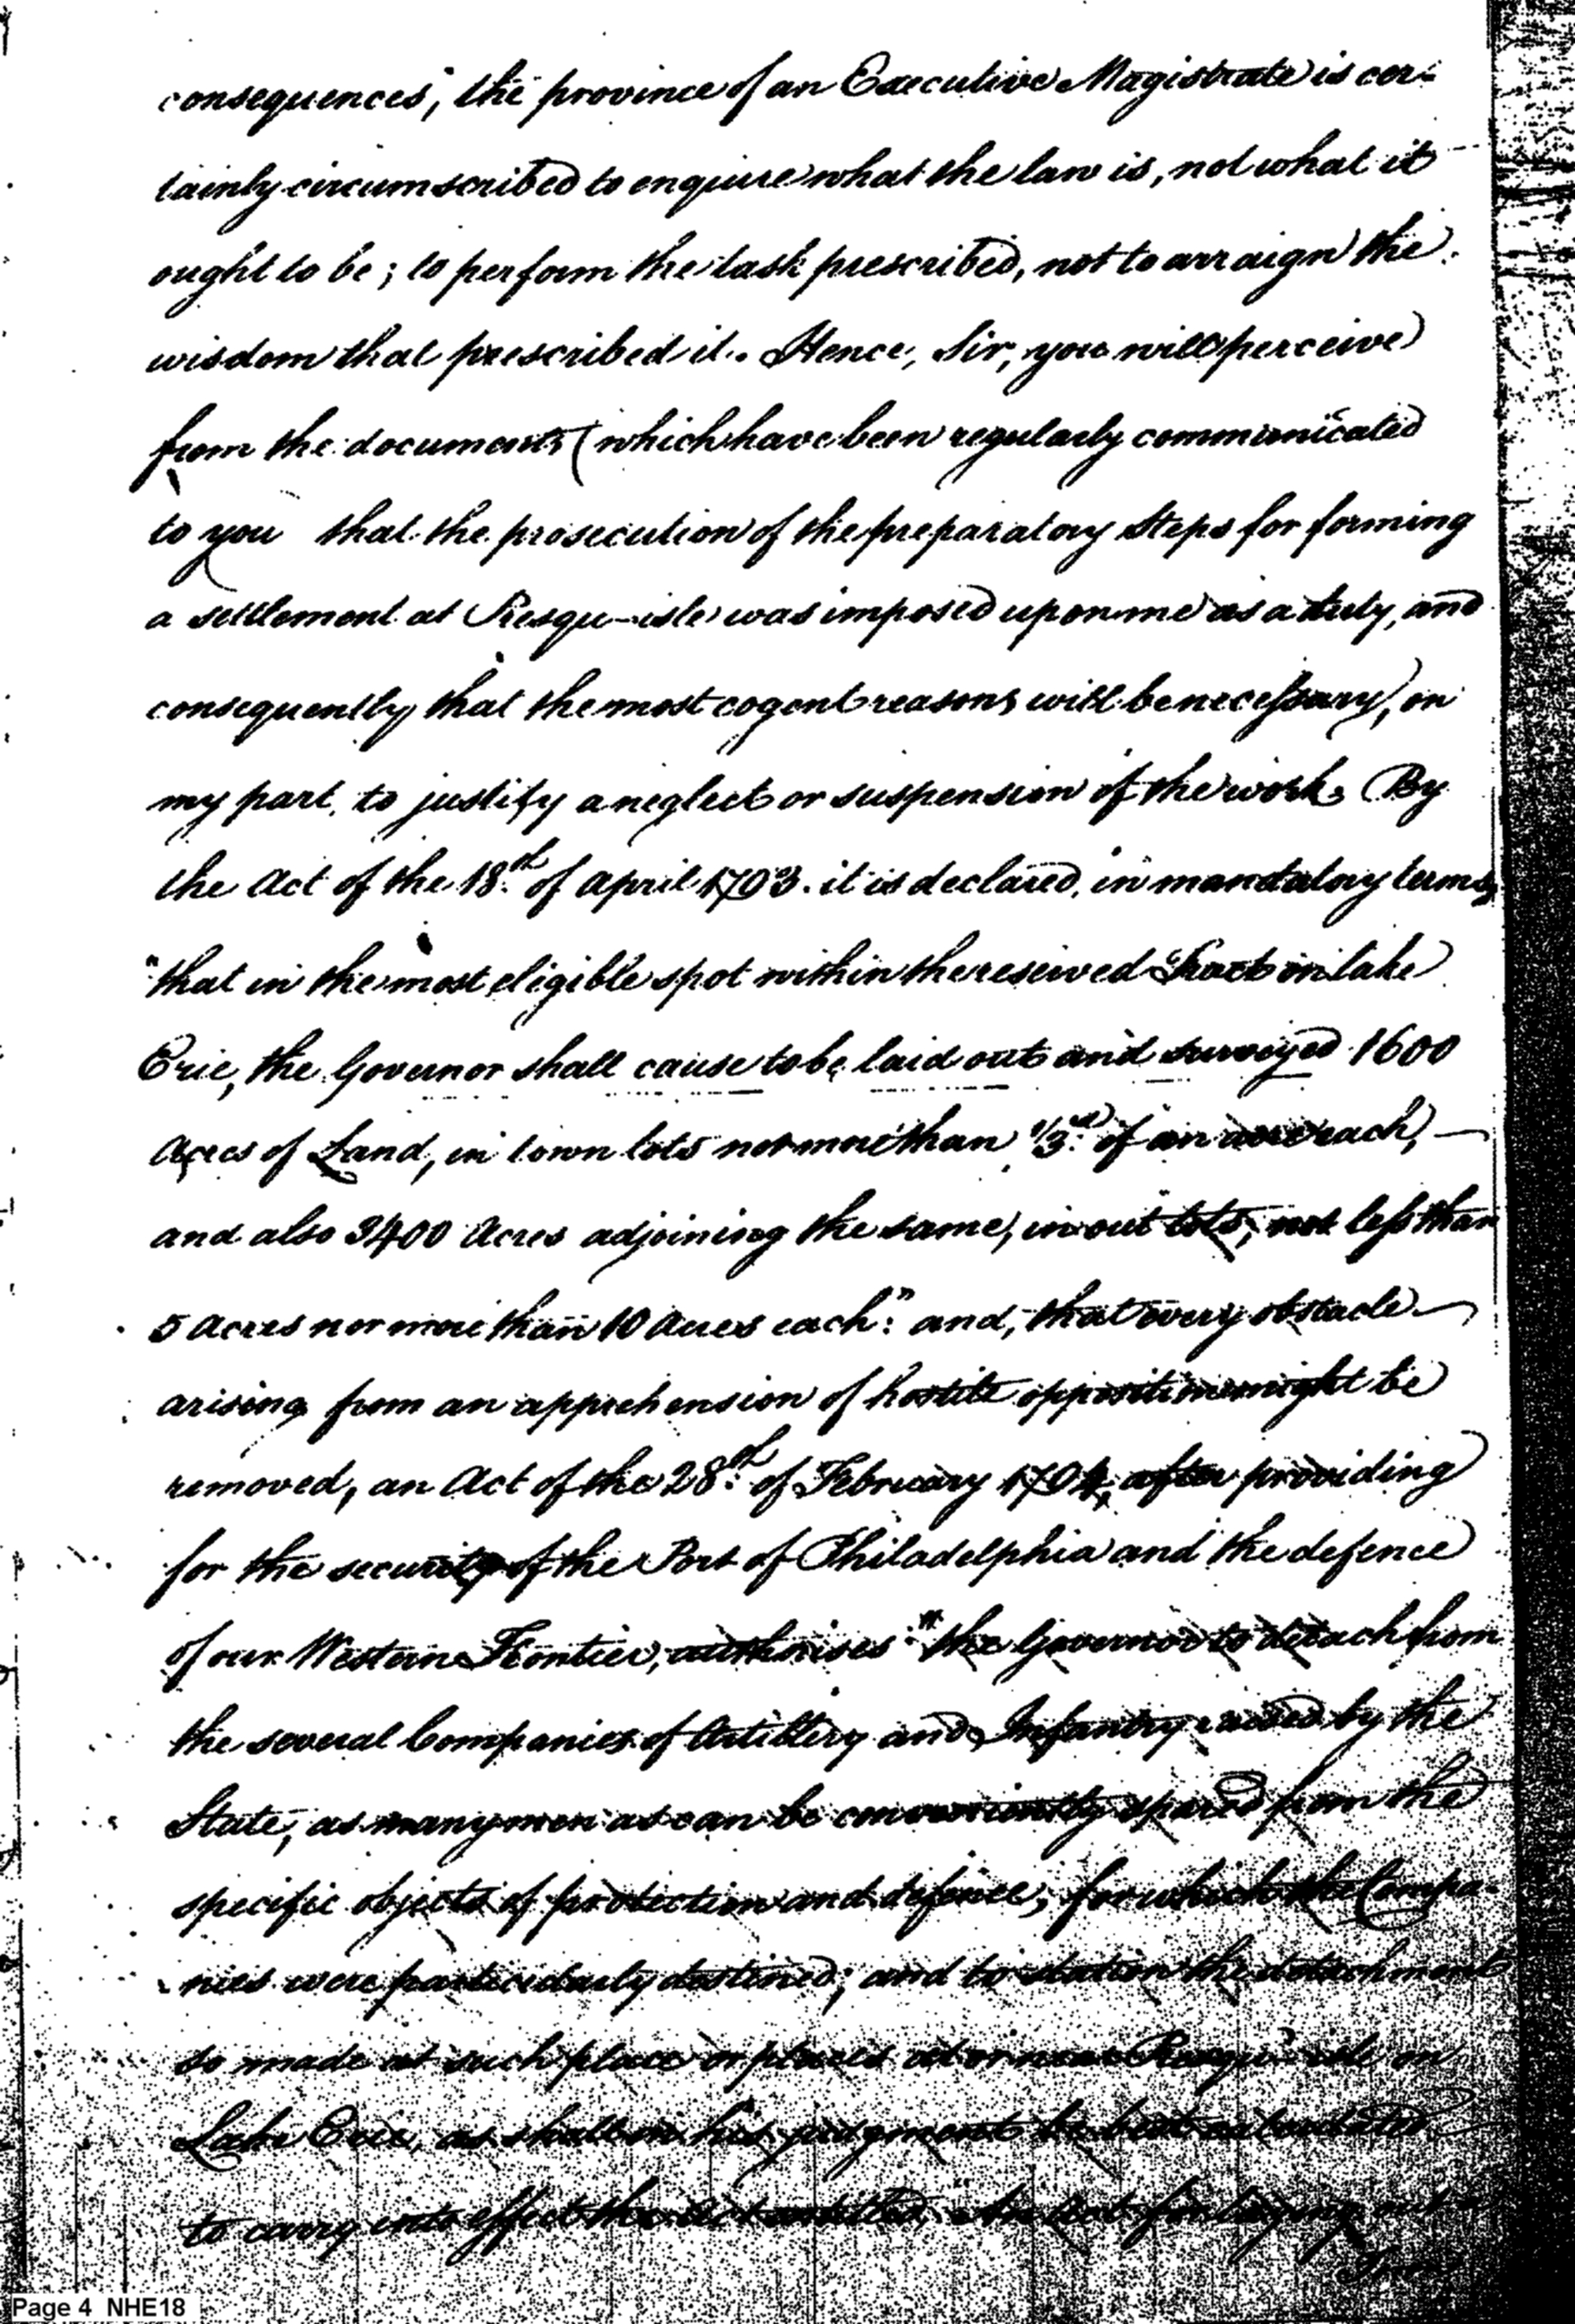 consequences," the province of an Executive Magistrate is cer-
tainly circumscribed to enquire what the law is, not what it
ought to be; to perform the task prescribed, not to arraign the
wisdom that prescribed it. Hence, Sir, you will perceive
from the documents (which have been regularly communicated
to you that the prosecution of the preparatory Steps for forming
a settlement at Presqu-isle was imposed upon me as a duty, and
consequently that the most cogent reasons will be necessary, on
my part, to justify a neglect or suspension of the work. By
the Act of the 18th of April 1793. it is declared, in mandatory terms,
"that in the most eligible spot within the reserved Tract on lake
Erie, the Governor shall cause to be laid out and surveyed 1600
Acres of Land, in town lots not more than 1/3.d of an acre each,
and also 3400 Acres adjoining the same, in out lots, not less than
5 Acres nor more than 10 Acres each:" and, that every obstacle
arising from an apprehension of hostile opposition might be
removed, an Act of the 28th of February 1794, after providing
for the security of the Port of Philadelphia and the defence
of our Western Frontier, authorises "the Governor to detach from
the several Companies of Artillery and Infantry raised by the
State, as many men as can be conveniently spared from the
specific objects of protection and defence, for which the Compa-
nies were particularly destined; and to station the detachment
so made at such place or places at or near Presqu' isle on
Lake Erie, as shall in his judgment be best calculated
to carry into effect the act entitled, "An Act for laying out
Page 4 NHE18